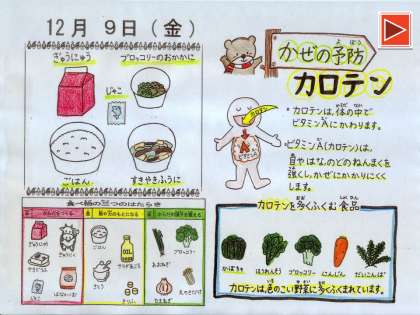 12月 9日(金)
ぎゅうにゅう
ブロッコリーのおかかに
じゃこ
ごはん
すきやきふうに
食べ物の三つのはたらき
からだをつくる
ぎゅうにゅう
ぎゅうにく
じゃこ
ごはん
さとう
ブロッコリー
たまねぎ
かぜの予防
よぼう
カロテン
・カロテンは、体の中で
ビタミンAにかわります。
・ビタミンA(カロテン)は、
目や はな、のどのねんまくを
強くしかぜにかかりにくく
します。
ビタミン
A
カロテンを多くふくむ 食品
かぼちゃ
ほうれんそう
ブロッコリー
にんじん
だいこんば
カロテンは、色のこい野菜に多くふくまれています。